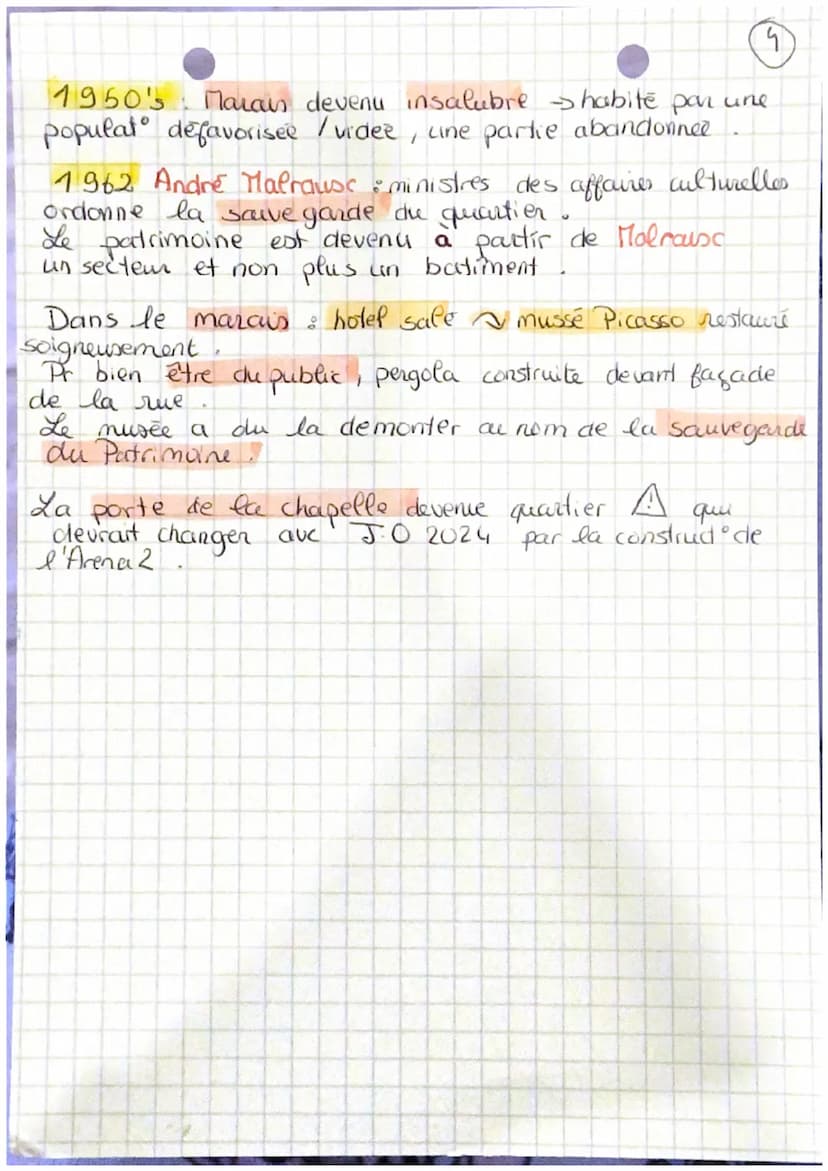 4
1950's : Marais devenu insalubre → habité par une
populat° défavorisée / videe, une partie abandonnee.
1962 André Malraux : ministres des affaires culturelles
ordonne la sauvegarde du quartier.
Le patrimoine est devenu à partir de Malraux
un secteur et non plus un batiment.
Dans le marais : hotel salé ~ mussé Picasso restauré
soigneusement.
Pr bien être du public, pergola construite devant façade
de la rue.
Le musée a du la demonter au nom de la sauvegarde
du Patrimoine.
La porte de la chapelle devenue quartier ⚠ qui
devrait changer avc J.O 2024 par la construct° de
l'Arena 2.